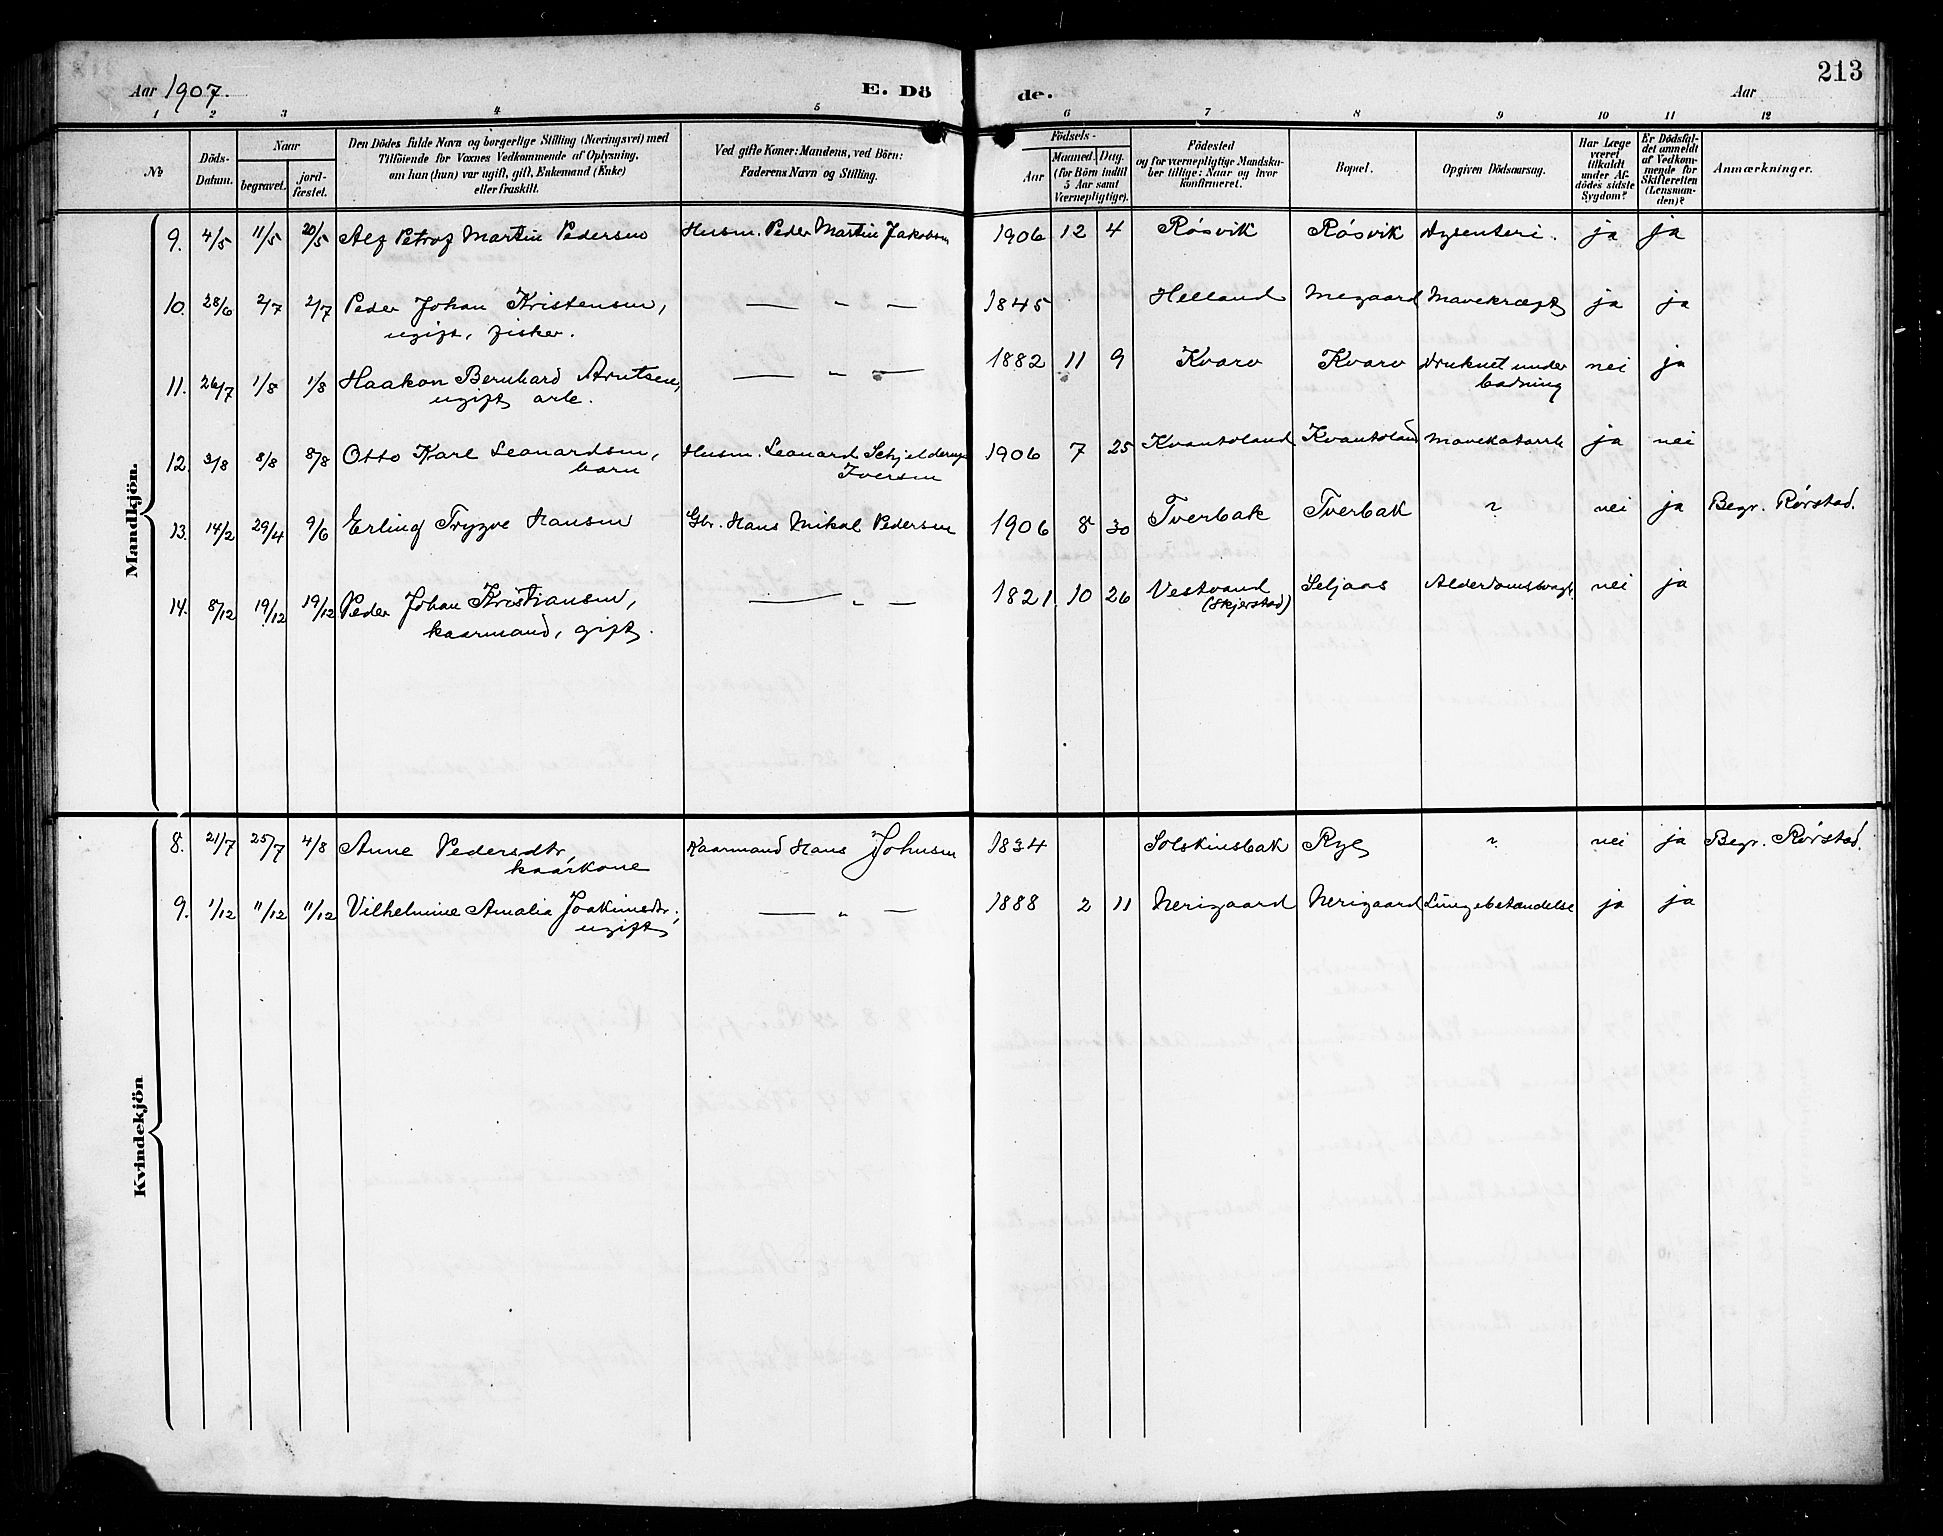 213
Aar 1907. E. Dö de. Aar
1 2 3 4 5 6 7 8 9 10 11 12
No
Döds-Datum.
Naar
begravet. jord-fæstet.
Den Dödes fulde Navn og borgerlige Stilling (Næringsvei) med
Tilföiende for Voxnes Vedkommende af Oplysning,
om han (hun) var ugift, gift, Enkemand (Enke)
eller fraskilt.
Ved gifte Koner: Mandens, ved Börn:
Faderens Navn og Stilling.
Födsels-
Aar Maaned. Dag.
(for Börn indtil
5 Aar samt
Værnepligtige).
Födested
og for værnepligtige Mandska-
ber tillige: Naar og hvor
konfirmeret.
Bopæl.
Opgiven Dödsaarsag.
Har Læge
været
tilkaldt
under Af-
dödes sidste
Sygdom?
Er Dödsfal-
det anmeldt
af Vedkom-
mende for
Skifteretten
(Lensman-
den)?
Anmærkninger.
Mandkjön.
9. 4/5 11/5 20/5 Alf Petrof Martin Pedersen Husm. Peder Martin Jakobsen 1906 12 4 Røsvik Røsvik Dysenteri. ja ja
10. 28/6 2/7 2/7 Peder Johan Kristensen, — " — 1845 Helland Megaard Mavekræft ja ja
ugift, fisker.
11. 26/7 1/8 1/8 Haakon Bernhard Arntsen, — " — 1882 11 9 Kvarv Kvarv Druknet under nei ja
ugift arb. badning
12. 3/8 8/8 8/8 Otto Karl Leonardsen, Husm. Leonard Schjelderup 1906 7 25 Kvantoland Kvantoland Mavekatarrh ja nei
barn Iversen
13. 14/2 29/4 9/6 Erling Trygve Hansen Gbr. Hans Mikal Pedersen 1906 8 30 Tverbak Tverbak ? nei ja Begr. Rørstad.
14. 8/12 19/12 19/12 Peder Johan Kristiansen, — " — 1821 10 26 Vestvand Seljaas Alderdomssvagh. nei ja
kaarmand, gift. (Skjerstad)
Kvindekjön
8. 21/7 25/7 4/8 Anne Pedersdtr. Kaarmand Hans Johnsen 1834 Solskinsbak Rye ? nei ja Begr. Rørstad.
kaarkone
9. 1/12 11/12 11/12 Vilhelmine Amalia Joakimsdtr., — " — 1888 2 11 Nerigaard Nerigaard Lungebetændelse ja ja
ugift